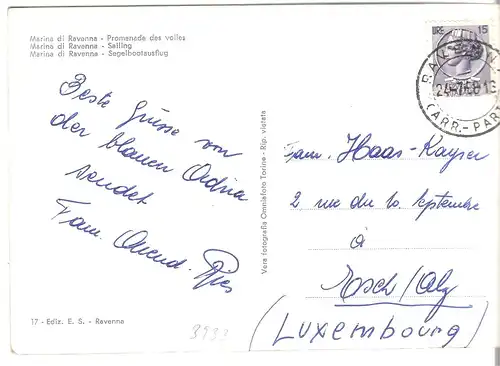 Marina di Ravenna - Promenade des voiles
Marina di Ravenna - Sailing
Marina di Ravenna - Segelbootsausflug
LIRE 15
RAVENNA
24-7-58-16
CARR.-PART
Beste Grüsse von
der blauen Adria
sendet
Fam. Ries
Vera fotografia Omniafoto Torino - Rip. vietata
Fam. Haas-Kayser
2 rue du 10 Septembre
à
Esch/Alz
(Luxembourg)
17 - Ediz. E. S. - Ravenna